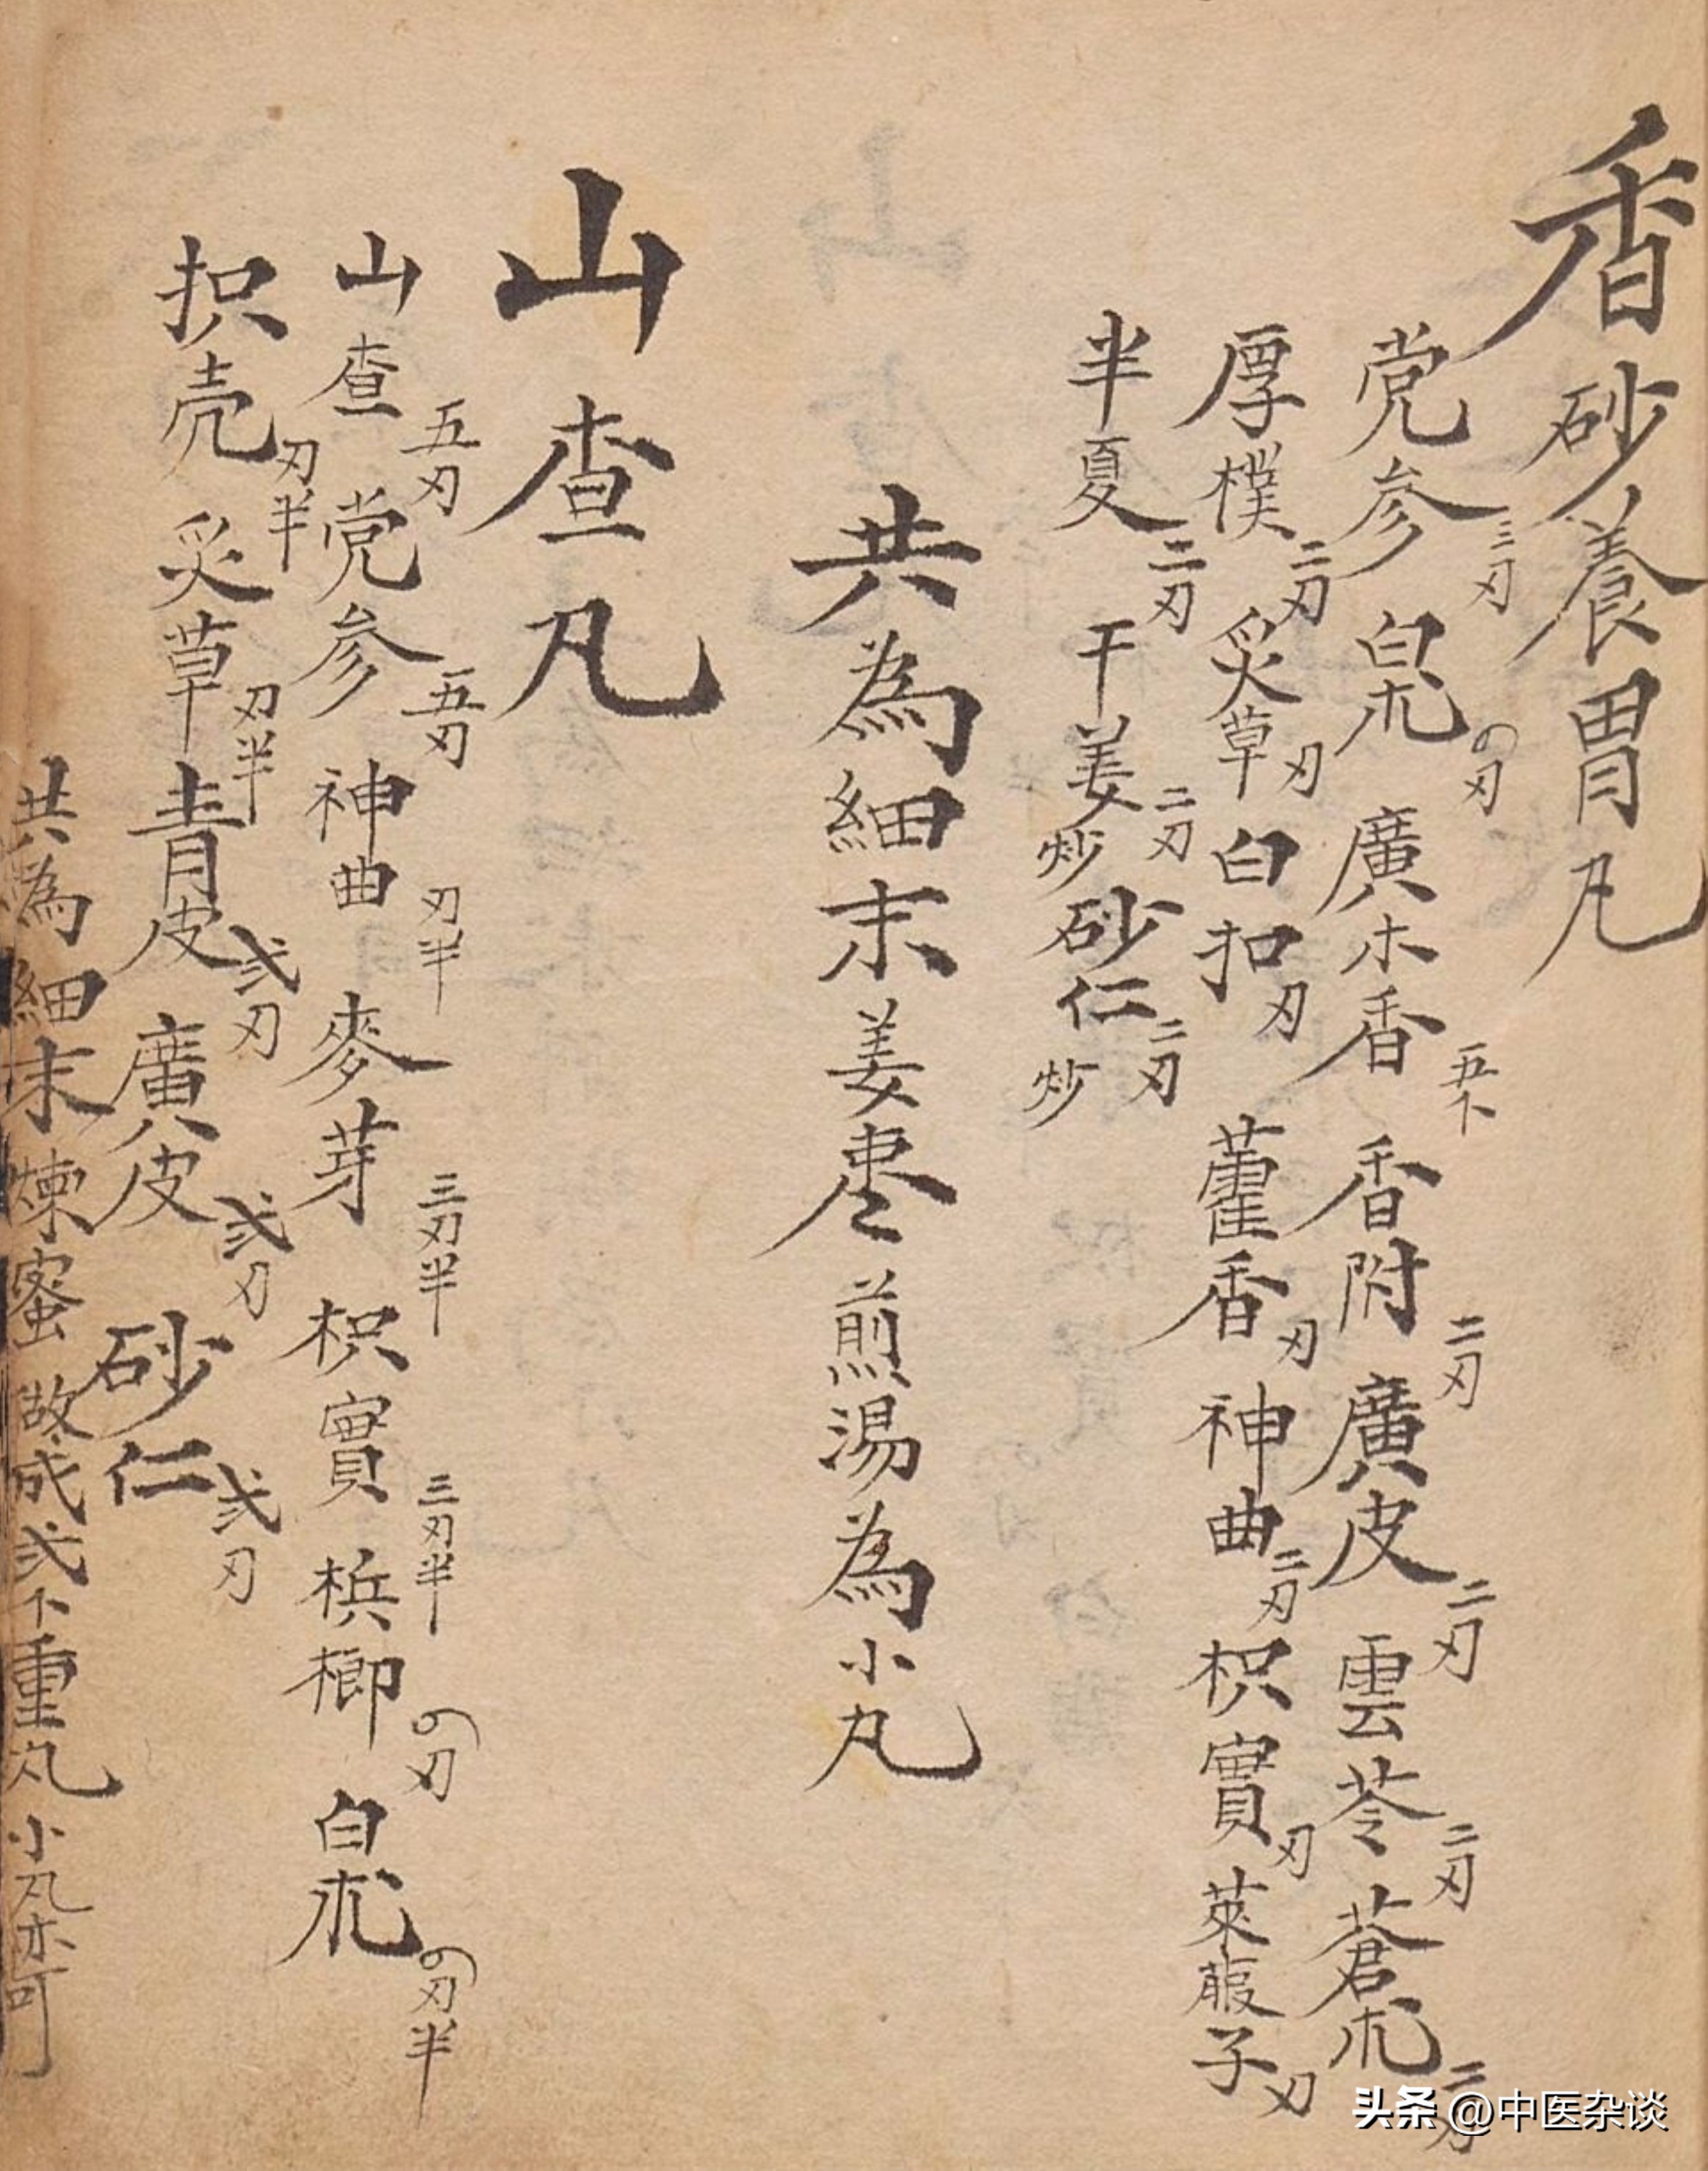 香砂養胃凡
党参三刃 白朮四刃 廣木香五卜 香附二刃 廣皮二刃 雲苓二刃 蒼朮二刃
厚樸二刃 炙草刃 白扣刃 藿香刃 神曲二刃 枳實刃 萊菔子刃
半夏二刃 干姜二刃炒 砂仁二刃炒
共為細末姜枣煎湯為小丸
山查凡
山查五刃 党参五刃 神曲刃半 麥芽三刃半 枳實三刃半 梹榔四刃 白朮四刃半
抧壳刃半 炙草刃半 青皮弍刃 廣皮弍刃 砂仁弍刃
共為細末煉蜜做成弍卜重丸小丸亦可
头条 @中医杂谈